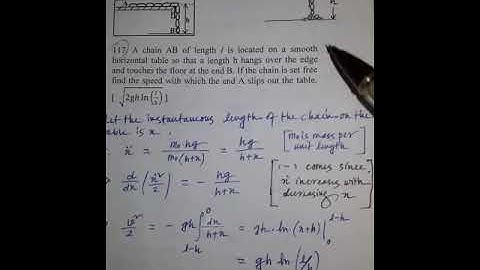 h
B
h
117. A chain AB of length l is located on a smooth
horizontal table so that a length h hangs over the edge
and touches the floor at the end B. If the chain is set free
find the speed with which the end A slips out the table.
[ √(2gh ln(l/h)) ]
Let the instantaneous length of the chain on the
table is x.
ẍ = m₀hg / m₀(h+x) = hg / (h+x) [m₀ is mass per unit length]
d/dx (ẋ²/2) = - hg / (h+x) [(-) comes since ẋ increases with decreasing x]
v²/2 = - gh ∫_{l-h}^{0} dx/(h+x) = gh. ln (x+h) |_{0}^{l-h}
= gh ln (l/h)